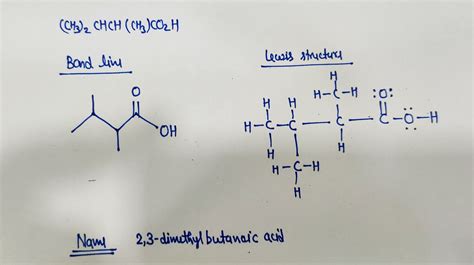 (CH₃)₂ CHCH (CH₃)CO₂H
Bond line
Lewis structure
O
OH
H
H-C-H :O:
H H
H-C-C-C-C-Ö-H
H H
H-C-H
H
Name 2,3-dimethylbutanoic acid